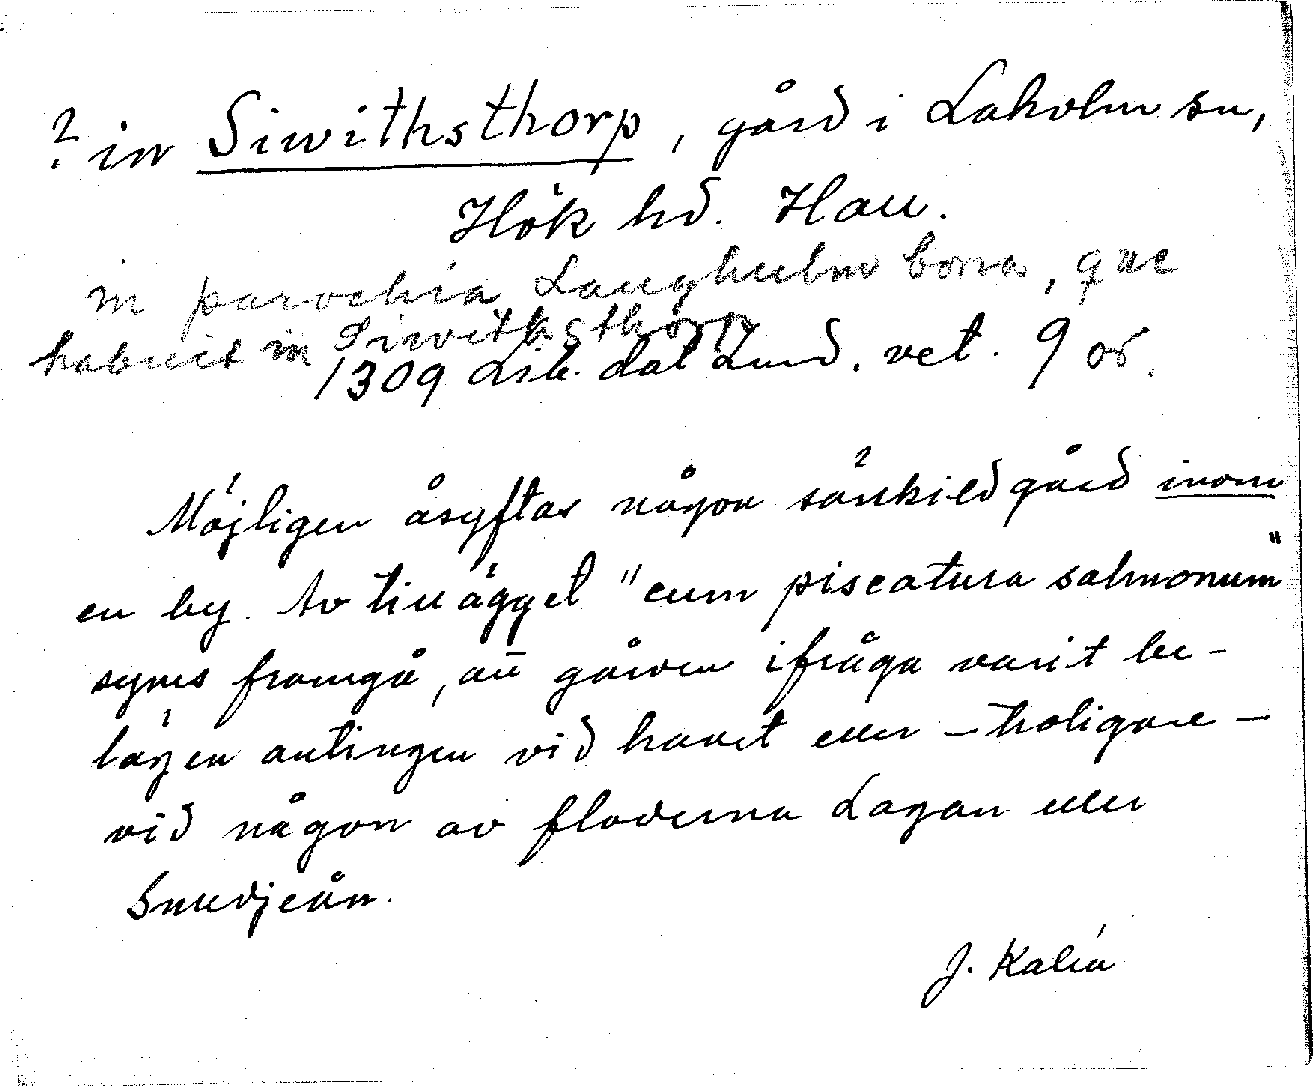 ? in Siwithsthorp, gård i Laholm sn,
Hök hd. Hall.
in parochia Laughulm bona, que
habuit in Siwithsthorp
1309 Lib. dat Lund. vet. 9 or.
Möjligen åsyftas någon särskild gård inom
en by. Av tillägget "cum piscatura salmonum"
synes framgå, att gården ifråga varit be-
lägen antingen vid havet eller - troligare -
vid någon av floderna Lagan eller
Smedjeån.
J. Kalén